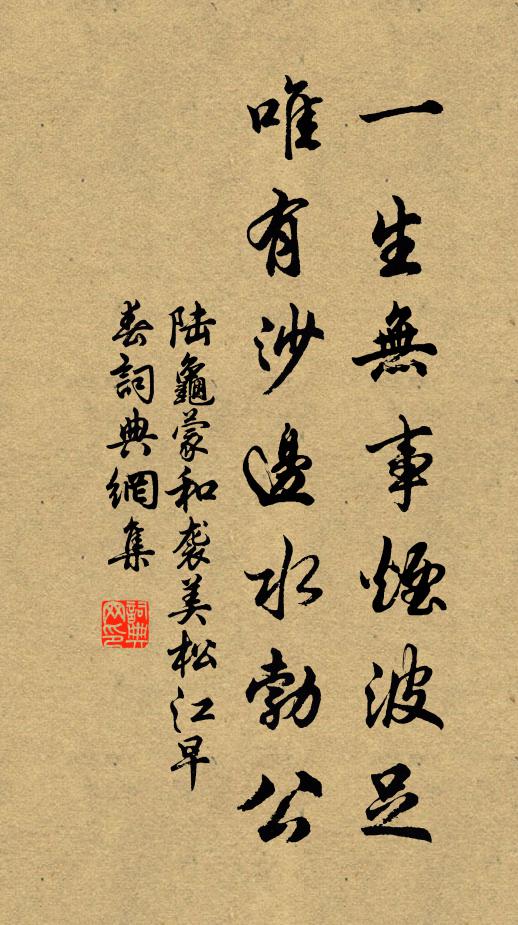 一生無事煙波足
唯有沙邊水勃公
陆龜蒙和袭美松江早
春詞典網集
詞典
网印